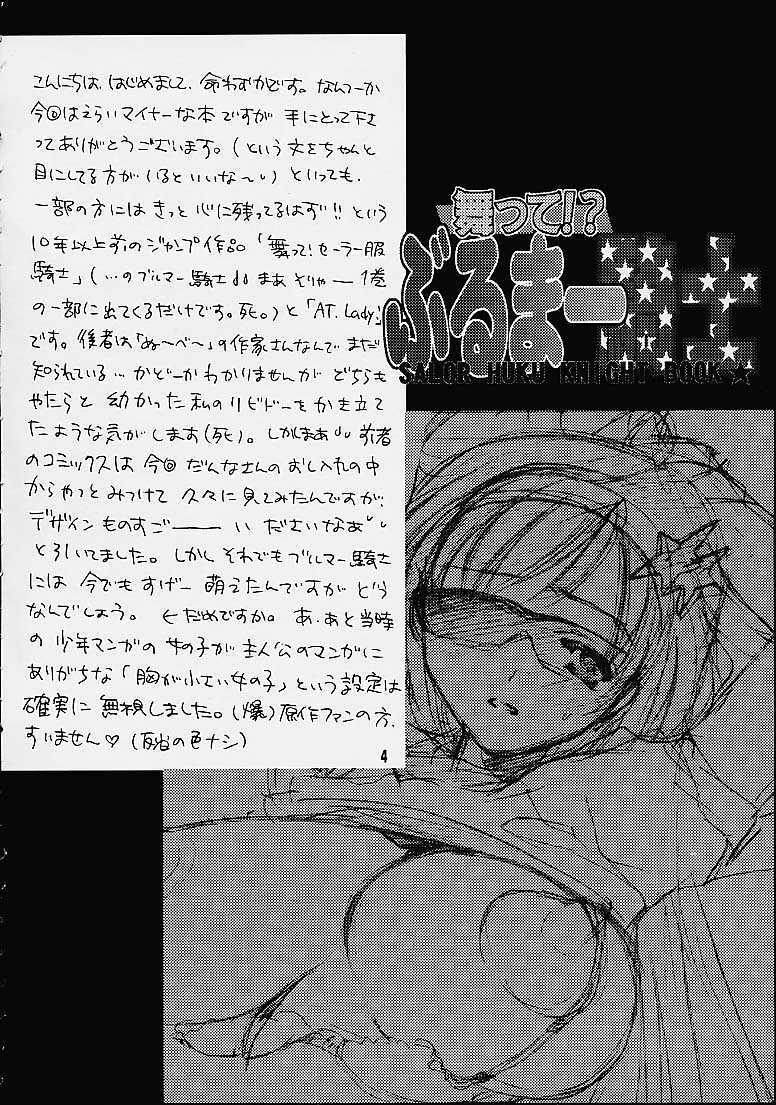 こんにちは、はじめまして、命わずかです。なんつーか
今回はえらいマイナーな本ですが 手にとって下さ
ってありがとうございます。(という文をちゃんと
目にしてる方が いるといいな〜。) といっても、
一部の方には きっと 心に残ってるはず!! という
10年以上前のジャンプ作品「舞って!セーラー服
騎士」(…のブルマー騎士。まあ そりゃー 1巻
の一部に出てくるだけです。死。)と「A.T. Lady」
です。後者は「ぬ〜べ〜」の作家さんなんで まだ
知られている…かどーか わかりませんが どちらも
やたらと 幼かった 私の リビドーを かき立て
たような気がします(死)。しかしまあ 前者
のコミックスは 今回 だんなさんの おし入れの中
から やっと みつけて 久々に 見てみたんですが、
デザイン ものすごーーい ださいなあ
とろいてました。しかし それでも ブルマー騎士
には 今でも すげー 萌えたんですが どう
なんでしょう。 ←だめですか。 あ、あと当時
の 少年マンガの 女の子が 主人公のマンガに
ありがちな「胸が小さい女の子」という設定は
確実に 無視しました。(爆) 原作ファンの方、
すいません♡ (反省の色ナシ)
4
舞って!?
ぶるまー騎士
SALOR HUKU KNIGHT BOOK★